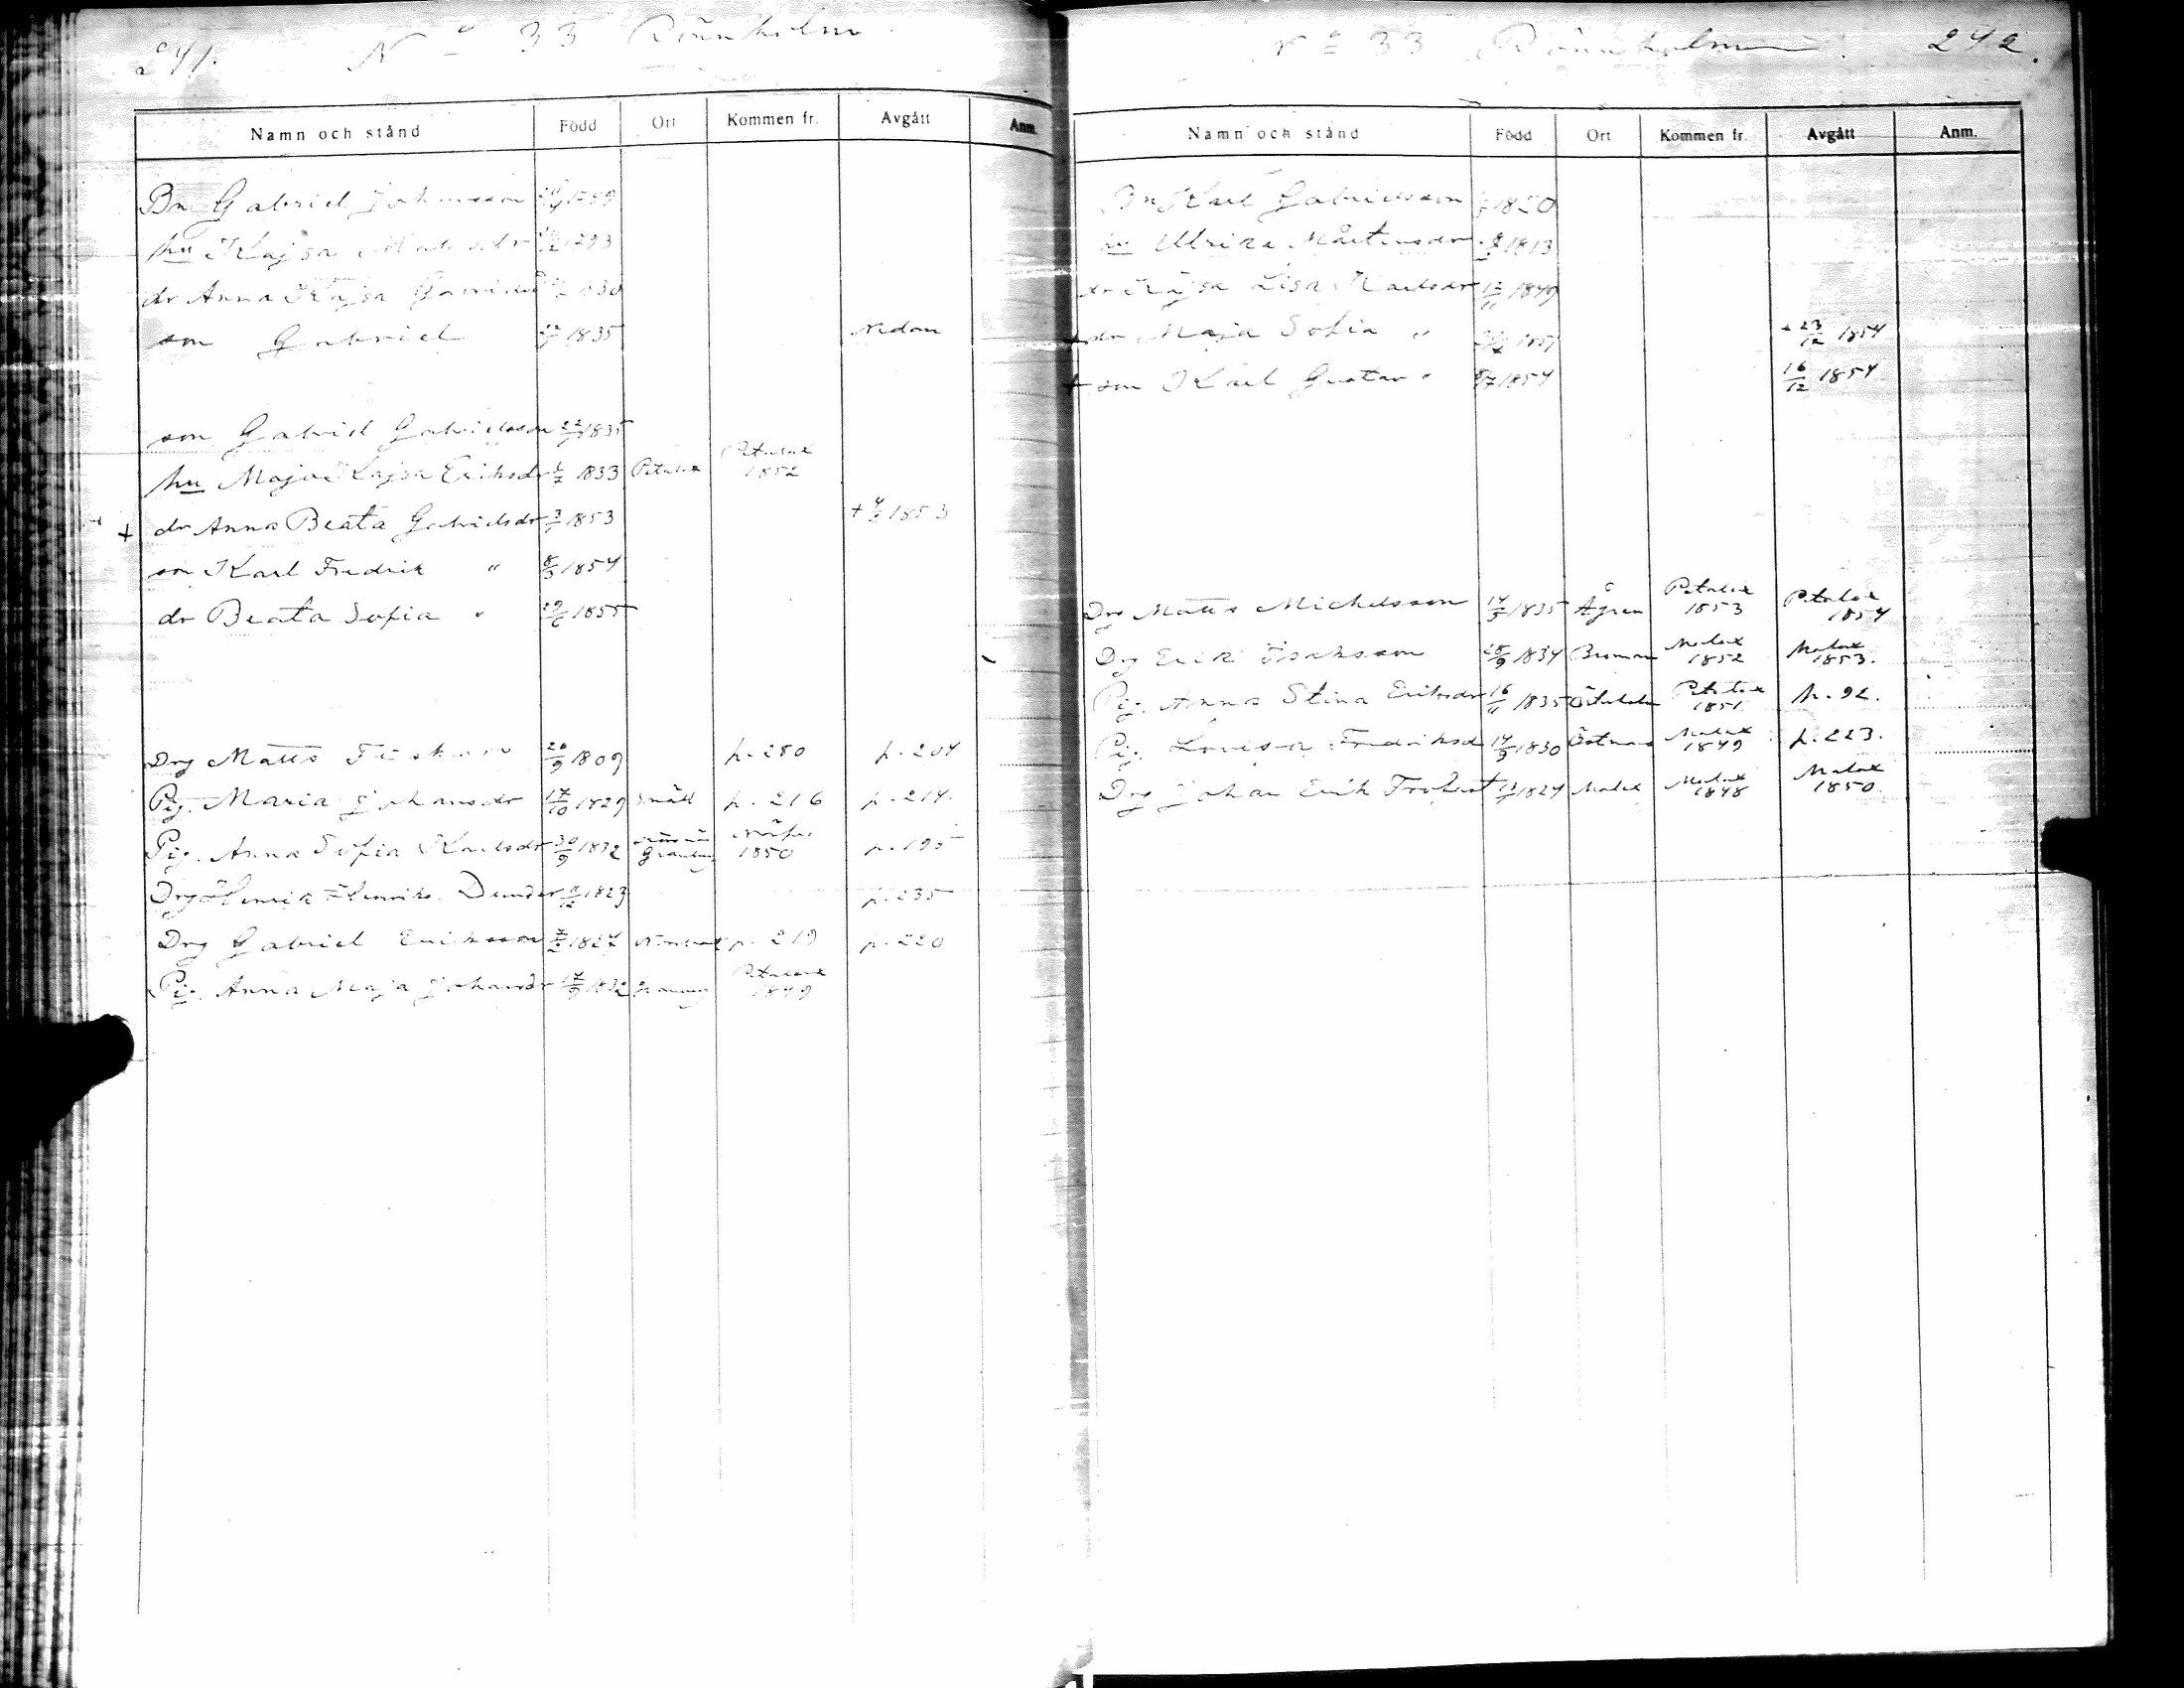 241. No 33 Rönnholm
Namn och stånd Född Ort Kommen fr. Avgått Anm.
Bn Gabriel Johansson 1789
hu Kajsa Matsdr 1793
dr Anna Kajsa Gabrielsd 1830
son Gabriel 1835 Nedan
son Gabriel Gabrielsson 22/7 1835
hu Maja Kajsa Eriksdr 1833 Petalax Petalax 1852
+ dr Anna Beata Gabrielsdr 3/1 1853 + 1853
son Karl Fredrik " 8/3 1854
dr Beata Sofia " 29/6 1855
Drg Matts 26/9 1809 p. 280 p. 204
Pig. Maria Johansdr 17/10 1829 Snått p. 216 p. 214.
Pig. Anna Sofia Karlsdr 30/9 1832 Granberg 1850 p. 195
Drg Henrik Henriks. Dunder 1823 p. 235
Drg Gabriel Eriksson 1827 p. 219 p. 220
Pig. Anna Maja Johansdr 17/9 1832 Petalax 1849
No 33 Rönnholm 242.
Namn och stånd Född Ort Kommen fr. Avgått Anm.
Bn Karl Gabrielsson 1820
hu Ulrika Mårtensdr 1813
dr Kajsa Lisa Karlsdr 12/11 1849
+ dr Maja Sofia " + 23/12 1854
+ son Karl Gustav " 1854 16/12 1854
Drg Matts Michelsson 14/3 1835 Ågren Petalax 1853 Petalax 1854
Drg Erik Isaksson 28/9 1834 Broman Malax 1852 Malax 1853.
Pig. Anna Stina Eriksdr 16/11 1835 Petalax 1851. p. 92.
Pig. Lovisa Fredriksd 14/3 1830 Östman Malax 1849 p. 223.
Drg Johan Erik 1824 Malax Malax 1848 Malax 1850.